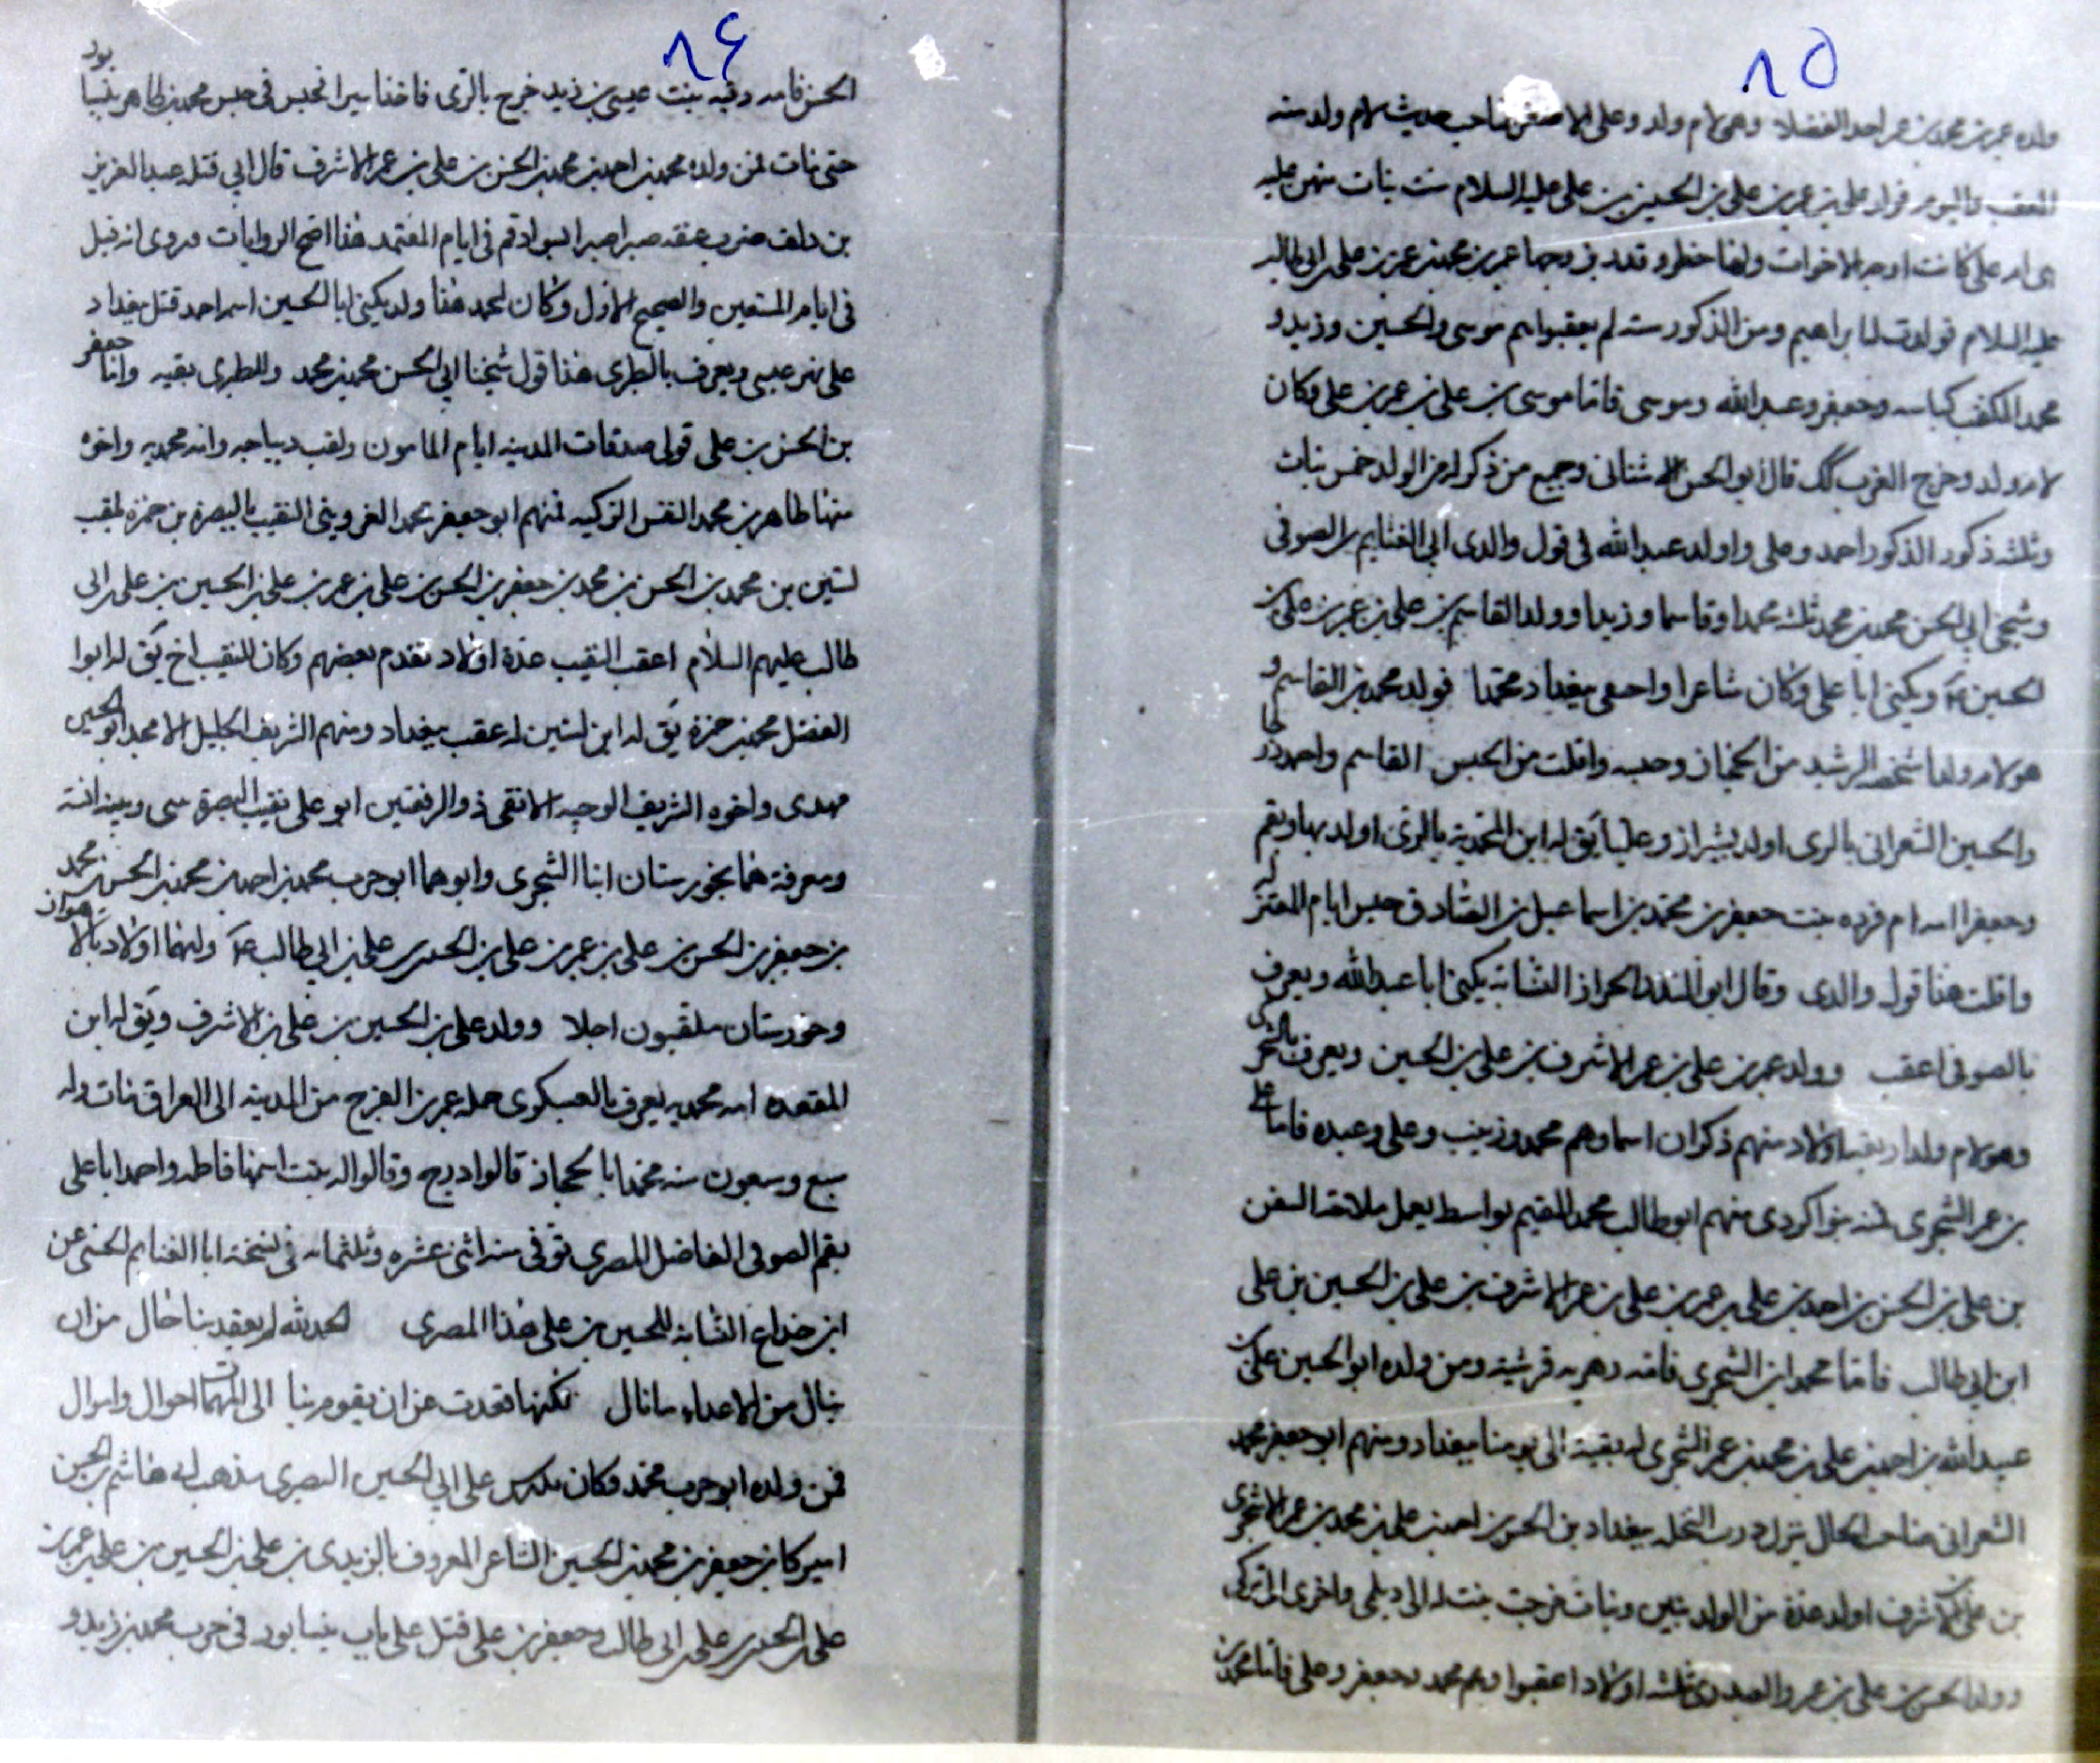 ٨٥
ولده عمر بن محمد بن عمر احد الفضلا وهى لام ولد وعلى الاصغر صاحب حديث لام ولد منه
العقب واليوم فولد على بن عمر بن على بن الحسين بن على عليه السلام ست بنات منهن عليه
ام على كانت اوجه الاخوات ولها خطر وقدر زوجها عمر بن محمد بن عمر بن على بن ابى طالب
عليه السلام فولدت له ابراهيم ومن الذكور ستة لم يعقبوا هم موسى والحسين وزيد و
محمد المكفف وجعفر وعبد الله وموسى فاما موسى بن على بن عمر بن على وكان
لام ولد وخرج قال ابو الحسن الاشنانى وجميع من ذكر له من الولد خمس بنات
وثلثه ذكور الذكور احمد وعلى واولد عبد الله فى قول والدى ابى الغنايم بن الصوفى
وشيخى ابى الحسن محمد بن محمد ثلثه محمدا وقاسما وزيدا وولد القاسم بن على بن عمر بن على بن
الحسين ويكنى ابا على وكان شاعرا واختفى ببغداد محمدا فولد محمد بن القاسم و
هو لام ولد اشخصه الرشيد من الحجاز وحبسه وافلت من الحبس القاسم واحمد
والحسين الشعرانى بالرى اولد بشيراز وعليا يق له ابن المحمدية بالرى اولد بها وبقم
وجعفرا امه ام فروه بنت جعفر بن محمد بن اسماعيل بن الصادق حبس ايام المعتز
وافلت هذا قول والدى وقال ابو المنذر الخراز النسابه يكنى ابا عبد الله ويعرف
بالصوفى اعقب وولد عمر بن على بن عمر الاشرف بن على بن الحسين ويعرف بالشجرى
وهو لام ولد اربعة اولاد منهم ذكران اسماوهم محمد وزينب وعلى وعبده فاما على
بن عمر الشجرى فمنه بنوا كردى منهم ابو طالب محمد المقيم بواسط يعمل ملاحة السفن
بن على بن الحسن بن احمد بن على بن عمر بن على بن عمر الاشرف بن على بن الحسين بن على
ابن ابى طالب فاما محمد ابن الشجرى فامه دهريه قرشية ومن ولده ابو الحسين على بن
عبيد الله بن احمد بن على بن محمد بن عمر الشجرى له بقية الى يومنا ببغداد ومنهم ابو جعفر محمد
الشعرانى صاحب الخال ينزل درب النخله ببغداد بن الحسن بن احمد بن على بن محمد بن عمر الشجرى
بن على الاشرف اولد عدة من الولد بنين وبنات خرجت بنت له الى ديلمى واخرى الى تركى
وولد الحسن بن على بن عمر والعدد ثلثه اولاد اعقبوا وهم محمد وجعفر وعلى فاما محمد بن
٨٤
الحسن فامه رقيه بنت عيسى بن زيد خرج بالرى فاخذ اسيرا فحبس فى حبس محمد بن طاهر بنيسابور
حتى مات فمن ولده محمد بن احمد بن محمد بن الحسن بن على بن عمر الاشرف قال ابى قتله عبد العزيز
بن دلف ضرب عنقه صبرا صبرا بسواد قم فى ايام المعتمد هذا اصح الروايات وروى انه قتل
فى ايام المستعين والصحيح الاول وكان لمحمد هذا ولد يكنى ابا الحسين اسمه احمد قتل ببغداد
على نهر عيسى ويعرف بالطبرى هذا قول شيخنا ابى الحسن محمد بن محمد وللطبرى بقيه واما جعفر
بن الحسن بن على فولى صدقات المدينه ايام المامون ولقب ديباجه وامه محمديه واخوه
منها طاهر بن محمد النفس الزكيه فمنهم ابو جعفر محمد القزوينى النقيب بالبصرة بن حمزه لقب
لستين بن محمد بن الحسن بن محمد بن جعفر بن الحسن بن على بن عمر بن على بن الحسين بن على بن ابى
طالب عليهم السلام اعقب النقيب عدة اولاد تقدم بعضهم وكان للنقيب اخ يق له ابوا
الفضل محمد بن حمزة يق له ابن لستين له عقب ببغداد ومنهم الشريف الجليل الامجد ابو الحسين
مهدى واخوه الشريف الوجيه الاتقى ذو الرفعتين ابو على نقيب البصرة بينى وبينه انسة
ومعرفة هما بخوزستان ابنا الشجرى وابوهما ابو حرب محمد بن احمد بن محمد بن الحسن بن محمد
بن جعفر بن الحسن بن على بن عمر بن على بن الحسين بن على بن ابى طالب ع ولهما اولاد بالاهواز
وخوزستان ملقبون اجلا وولد على بن الحسين بن على بن الاشرف ويق له ابن
المقعده امه محمديه يعرف بالعسكرى حمله عمر بن الفرج من المدينه الى العراق مات وله
سبع وسبعون سنه محمدا بالحجاز قالوا درج وقالوا له بنت اسمها فاطمه واحمد ابا على
بقم الصوفى الفاضل المصرى توفى سنه اثنى عشره وثلثمائه فى نسخه ابا الغنايم الحسنى عن
ابن خداع النسابه للحسين بن على هذا المصرى الحمد لله لم يقعد بنا حال من ان
ينال من الاعداء ما نال لكنها تعدت عن ان يقوم بنا الى المهمات احوال واموال
فمن ولده ابو حرب محمد وكان يدرس على ابى الحسين البصرى مذهب ابى هاشم بن الحسن
اميركا بن جعفر بن محمد بن الحسين الشاعر المعروف بالزيدى بن على بن الحسين بن على بن عمر بن
على بن الحسين بن على بن ابى طالب وجعفر بن على قتل على باب نيسابور فى حرب محمد بن زيد و